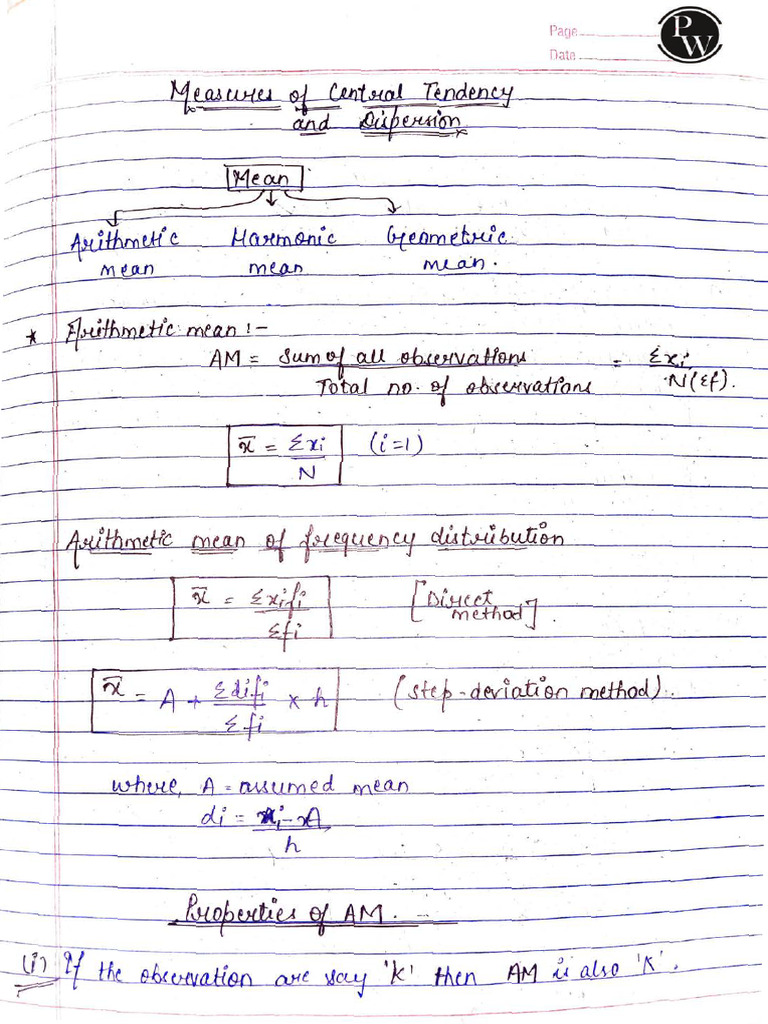 Page
Date
PW
Measures of Central Tendency
and Dispersion
Mean
Arithmetic mean
Harmonic mean
Geometric mean.
* Arithmetic mean :-
AM = Sum of all observations / Total no. of observations = Σxi / N(Σf).
x̄ = Σxi / N (i=1)
Arithmetic mean of frequency distribution
x̄ = Σxifi / Σfi [Direct method].
x̄ = A + Σdifi / Σfi × h (step-deviation method).
where, A = assumed mean
di = xi - A / h
Properties of AM.
(i) If the observation are say 'K' then AM is also 'K'.